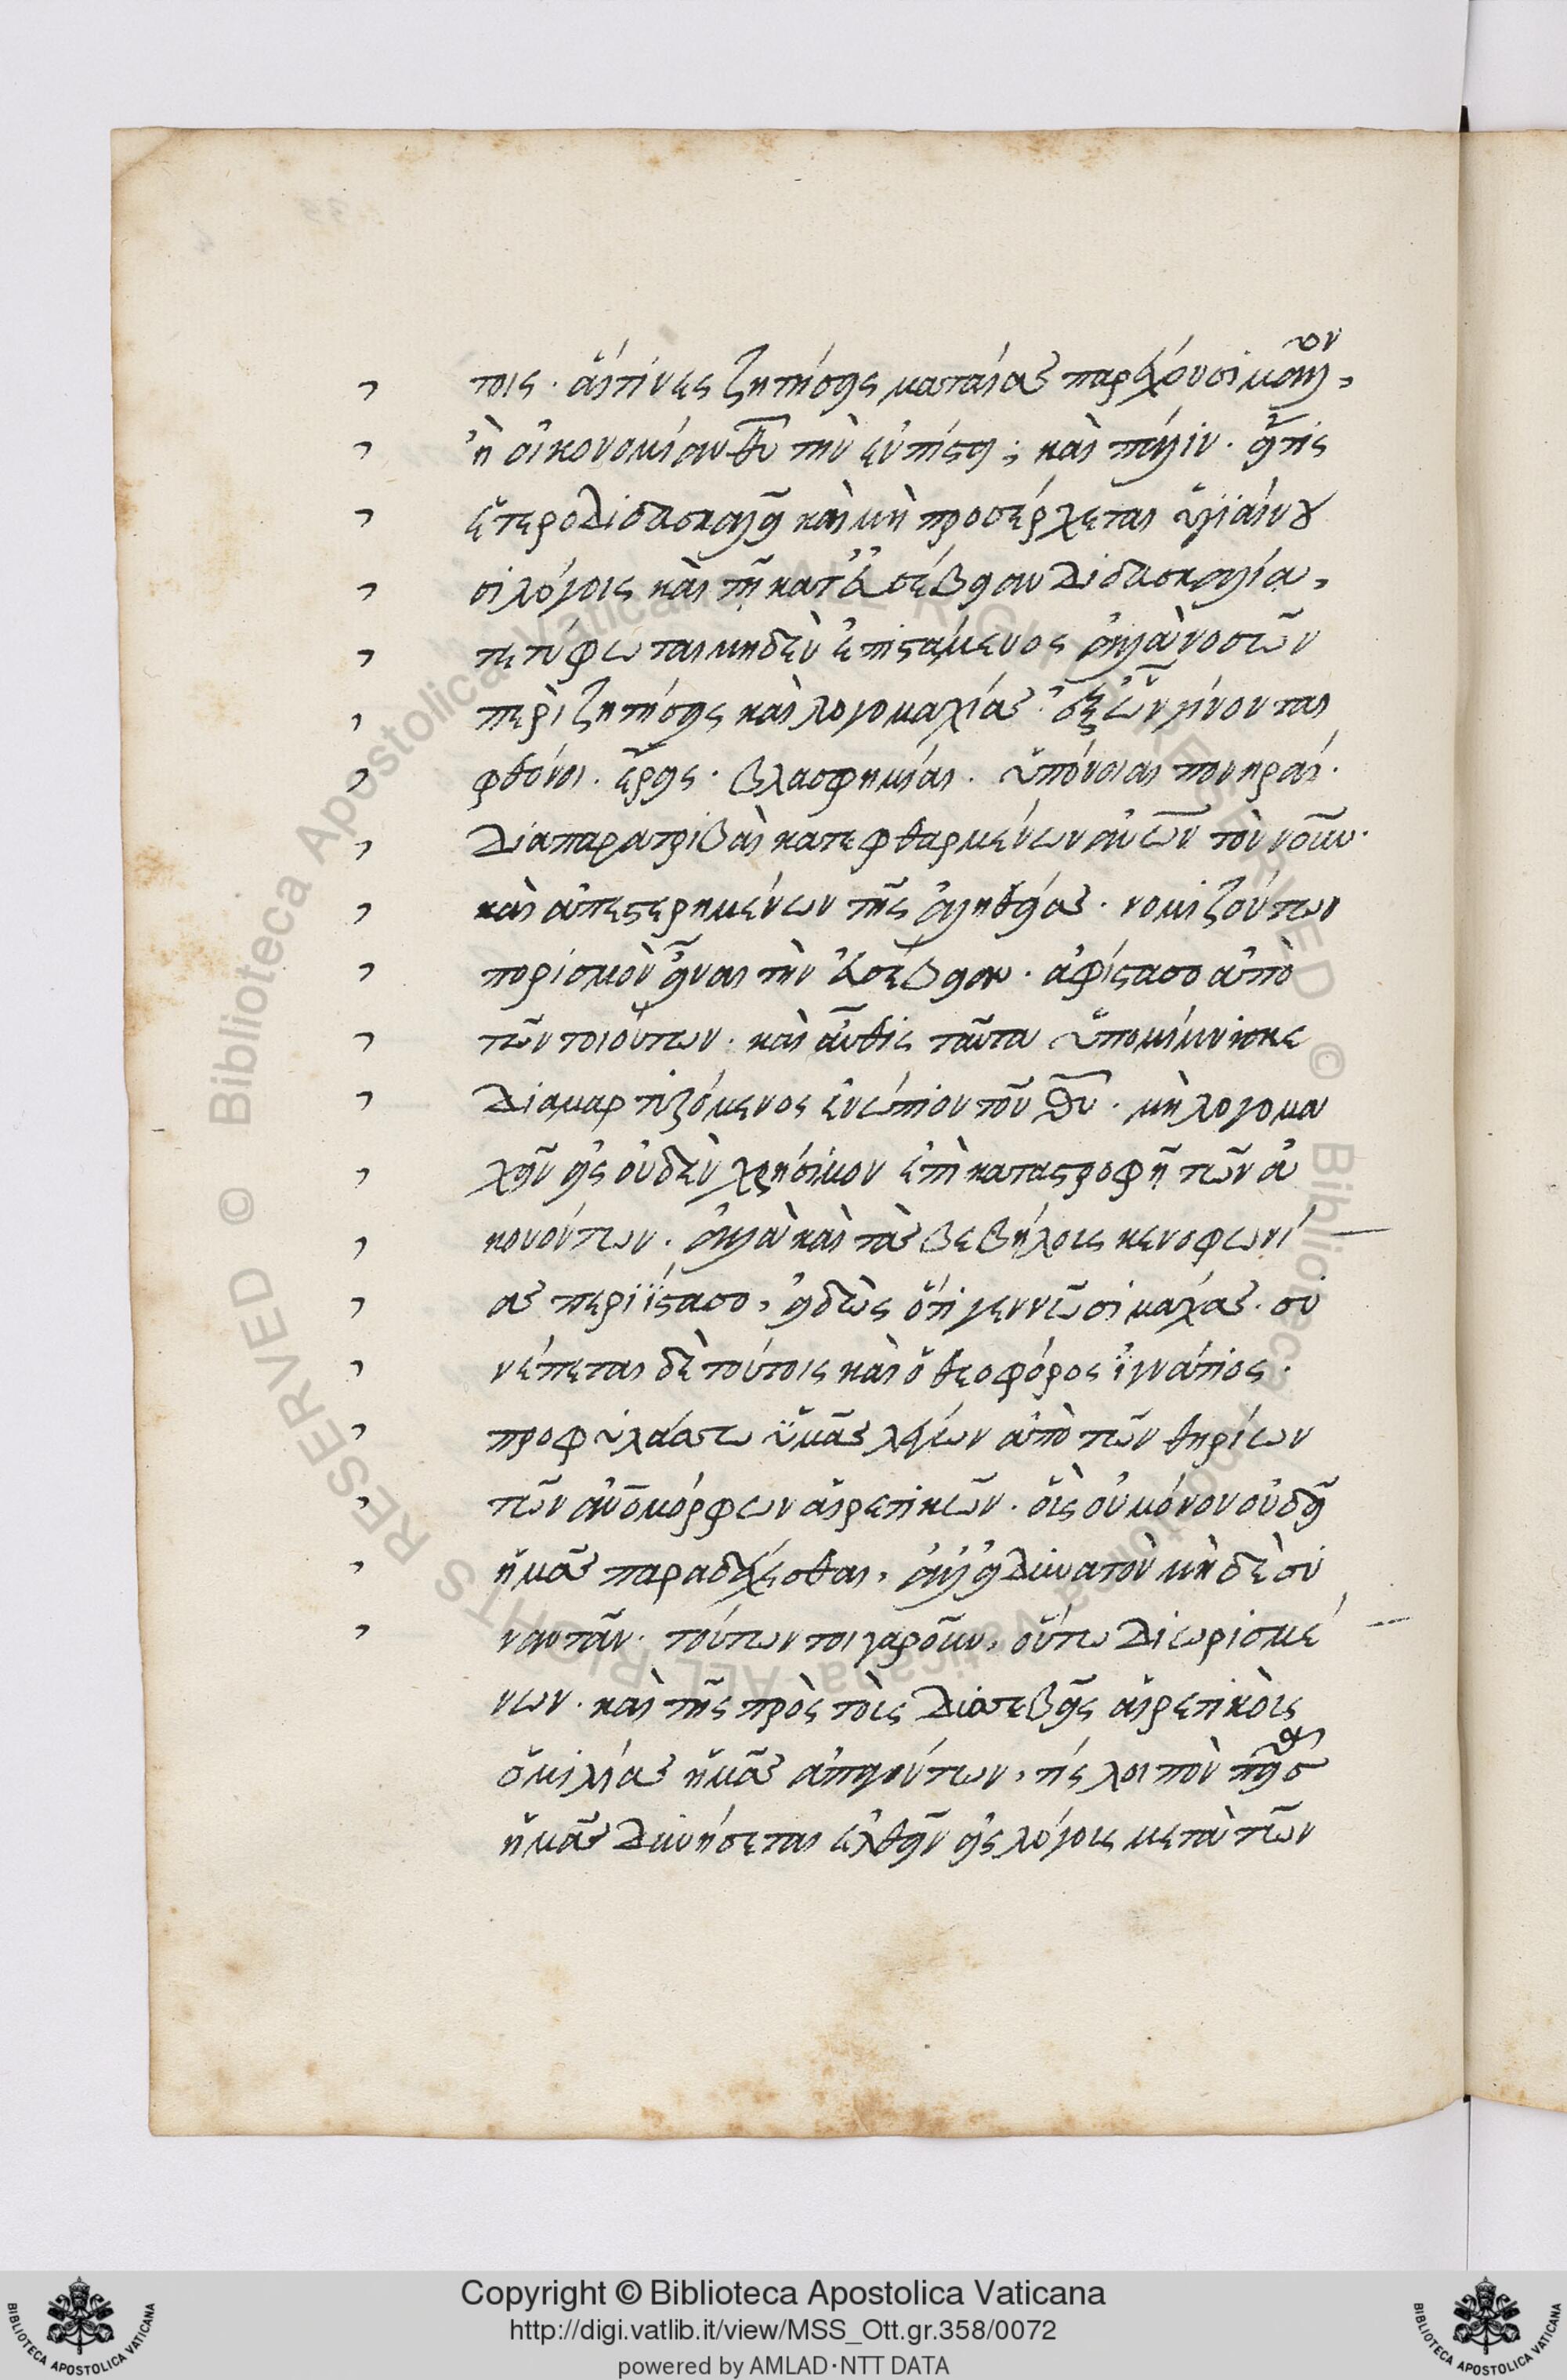 τοις. αἵτινες ζητήσεις ματαίας παρέχουσι μᾶλλον,
ἢ οἰκονομίαν θυ τὴν ἐν πίστει; καὶ πάλιν. εἴτις
ἑτεροδιδασκαλεῖ καὶ μὴ προσέρχεται ὑγιαίνου
σι λόγοις καὶ τῇ κατ' εὐσέβειαν διδασκαλία,
τετύφωται μηδὲν ἐπιστάμενος ἀλλὰ νοσῶν
περὶ ζητήσεις καὶ λογομαχίας. ἐξ ὧν γίνονται
φθόνοι. ἔρεις. βλασφημίαι. ὑπόνοιαι πονηραί.
διαπαρατριβαὶ κατεφθαρμένων ἀνῶν τὸν νοῦν.
καὶ ἀπεστερημένων τῆς ἀληθείας. νομιζόντων
πορισμὸν εἶναι τὴν εὐσέβειαν. ἀφίστασο ἀπὸ
τῶν τοιούτων. καὶ αὖθις ταῦτα ὑπομίμνησκε
διαμαρτυρόμενος ἐνώπιον τοῦ θυ. μὴ λογομα
χεῖν εἰς οὐδὲν χρήσιμον ἐπὶ καταστροφῇ τῶν ἀ
κουόντων. ἀλλὰ καὶ τὰς βεβήλοις κενοφωνί
ας περιΐστασο, εἰδὼς ὅτι γεννῶσι μάχας. συ
νέπεται δὲ τούτοις καὶ ὁ θεοφόρος ἰγνάτιος.
προφυλάσσω ὑμᾶς λέγων ἀπὸ τῶν θηρίων
τῶν ἀνομόρφων αἱρετικῶν. οἷς οὐ μόνον οὐ δεῖ
ἡμᾶς παραδέχεσθαι, ἀλλ' εἰ δυνατὸν μηδὲ συ
ναντᾶν. τούτων τοιγαροῦν, οὕτω διωρισμέ
νων. καὶ τῆς πρὸς τοῖς δυσσεβεῖς αἱρετικοῖς
ὁμιλίας ἡμᾶς ἀπειργόντων, τίς λοιπὸν πεῖσαι
ἡμᾶς δυνήσεται ἐλθεῖν εἰς λόγοις μετὰ τῶν
Copyright © Biblioteca Apostolica Vaticana
http://digi.vatlib.it/view/MSS_Ott.gr.358/0072
powered by AMLAD·NTT DATA